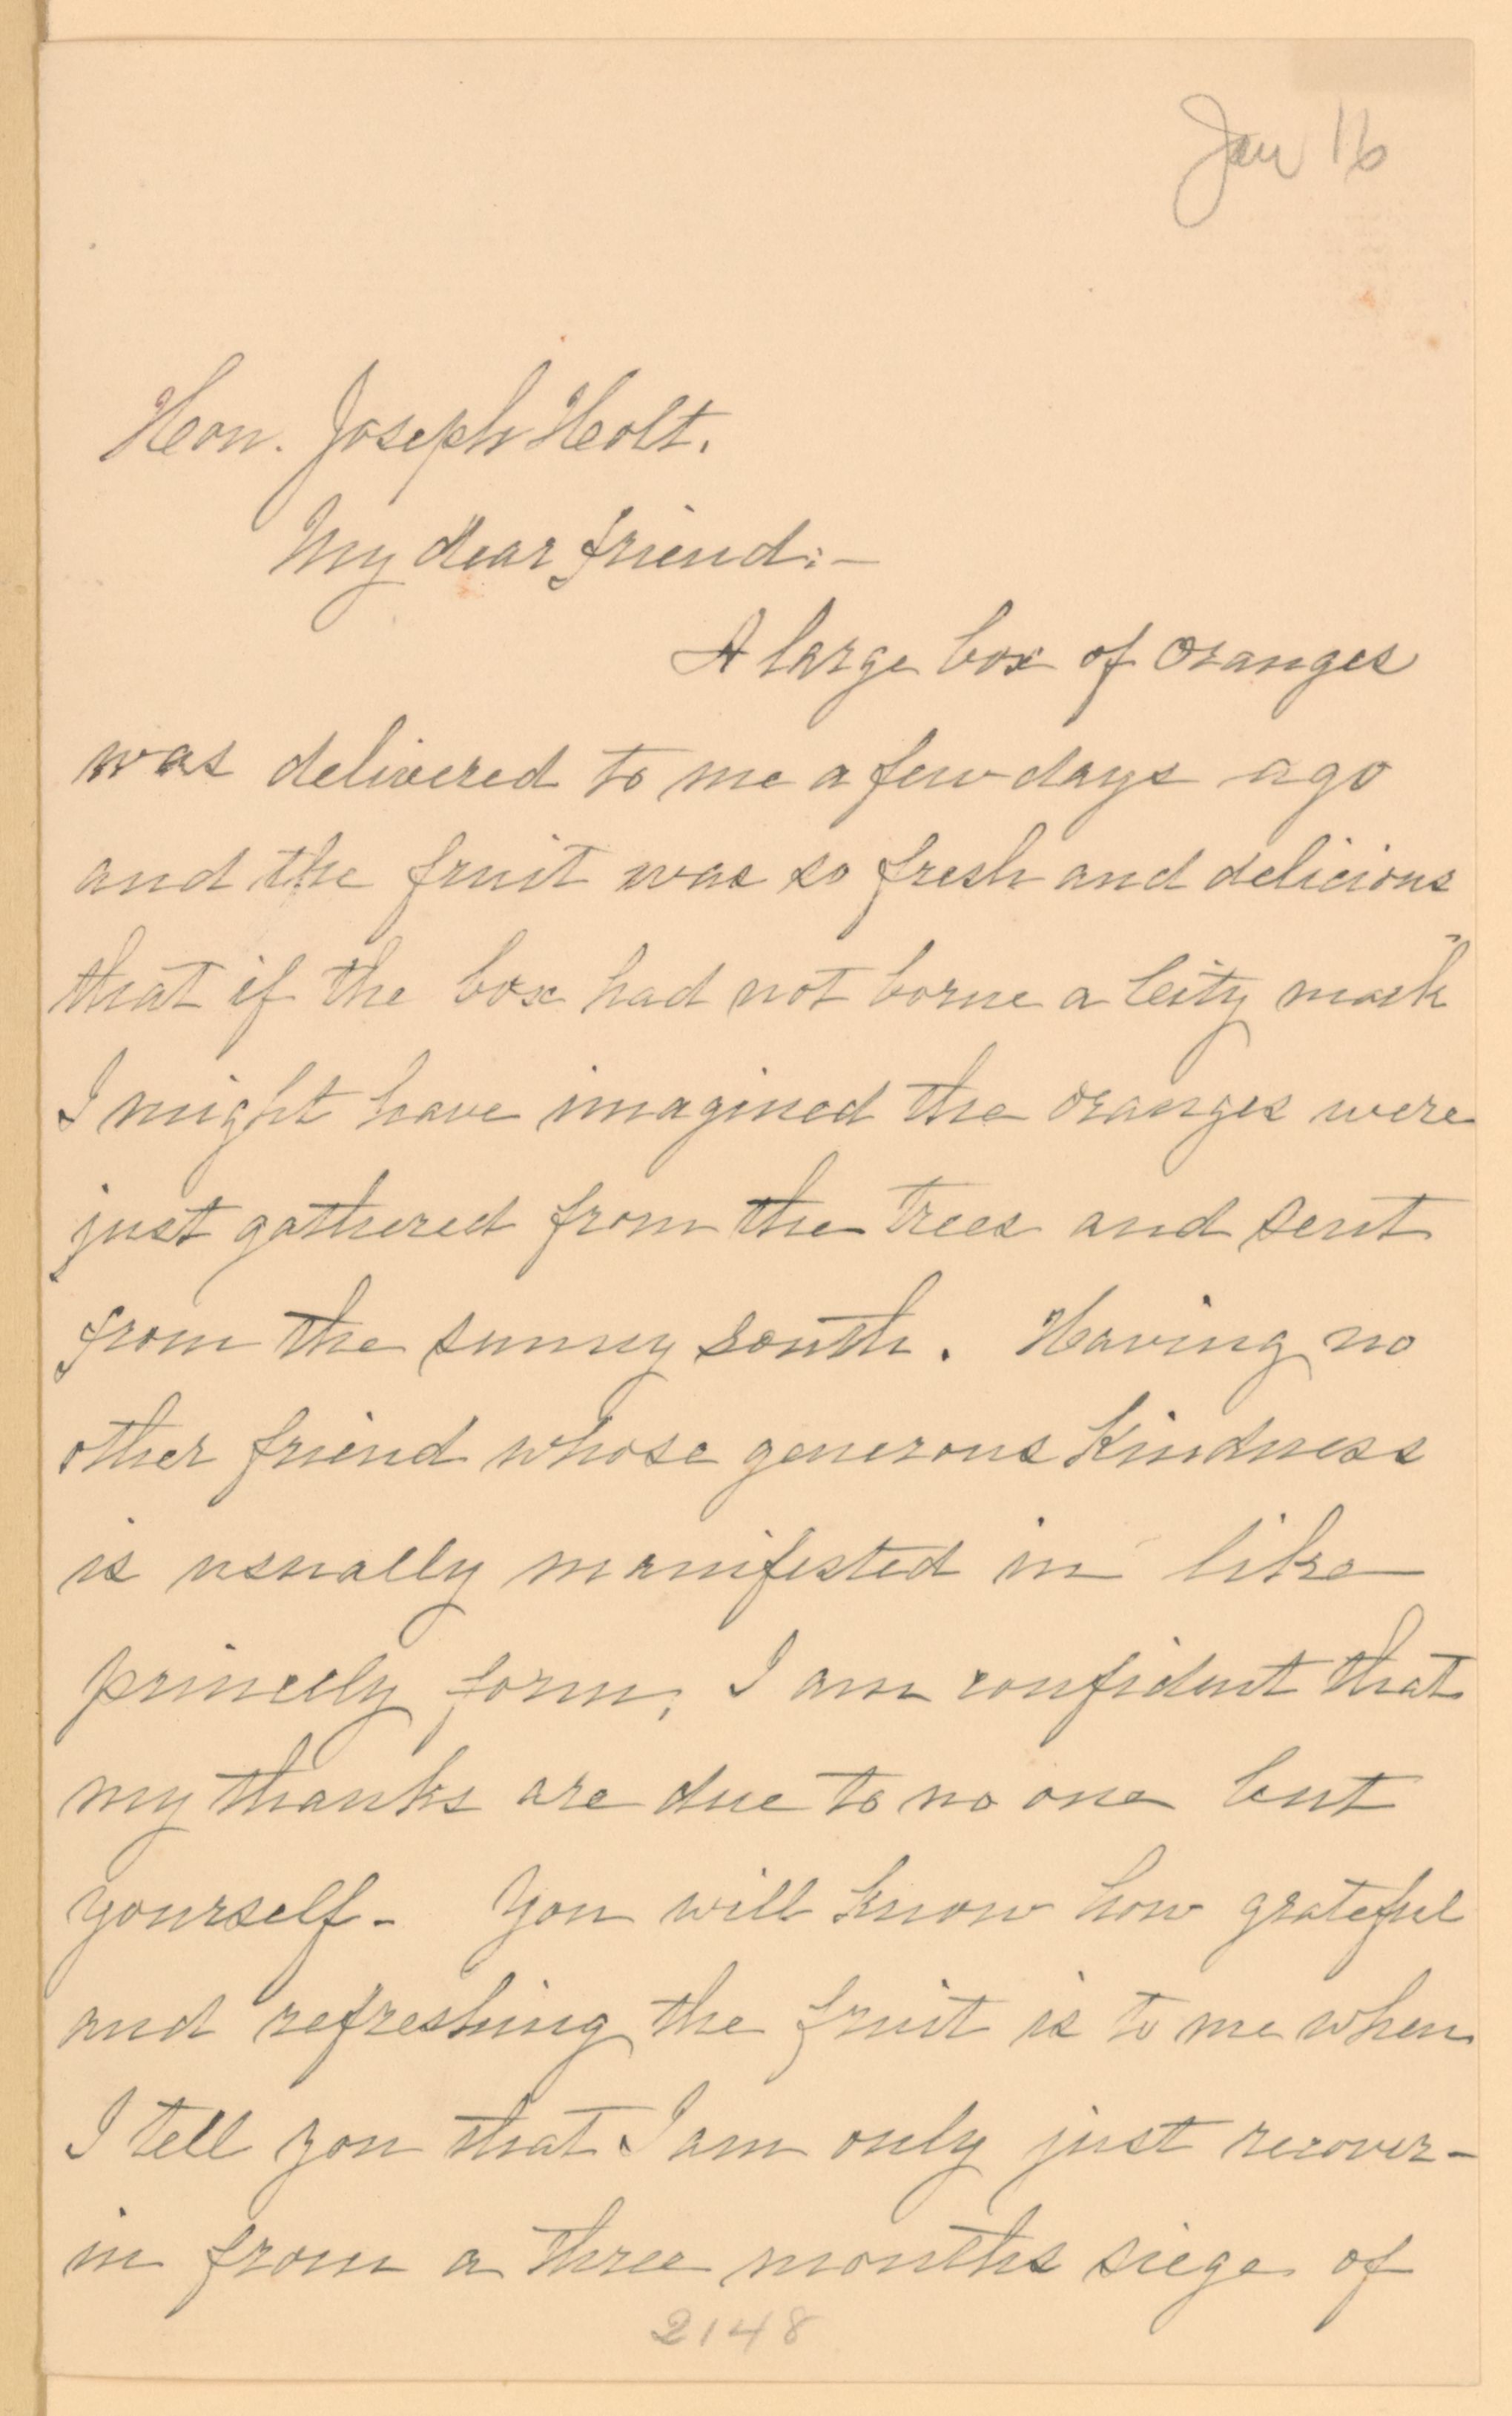 Jan 16
Hon. Joseph Holt.
My dear friend:—
A large box of oranges
was delivered to me a few days ago
and the fruit was so fresh and delicious
that if the box had not borne a City mark
I might have imagined the oranges were
just gathered from the trees and sent
from the sunny south. Having no
other friend whose generous kindness
is usually manifested in like
princely form, I am confident that
my thanks are due to no one but
yourself- You will know how grateful
and refreshing the fruit is to me when
I tell you that I am only just recover-
in from a three months siege of
2148